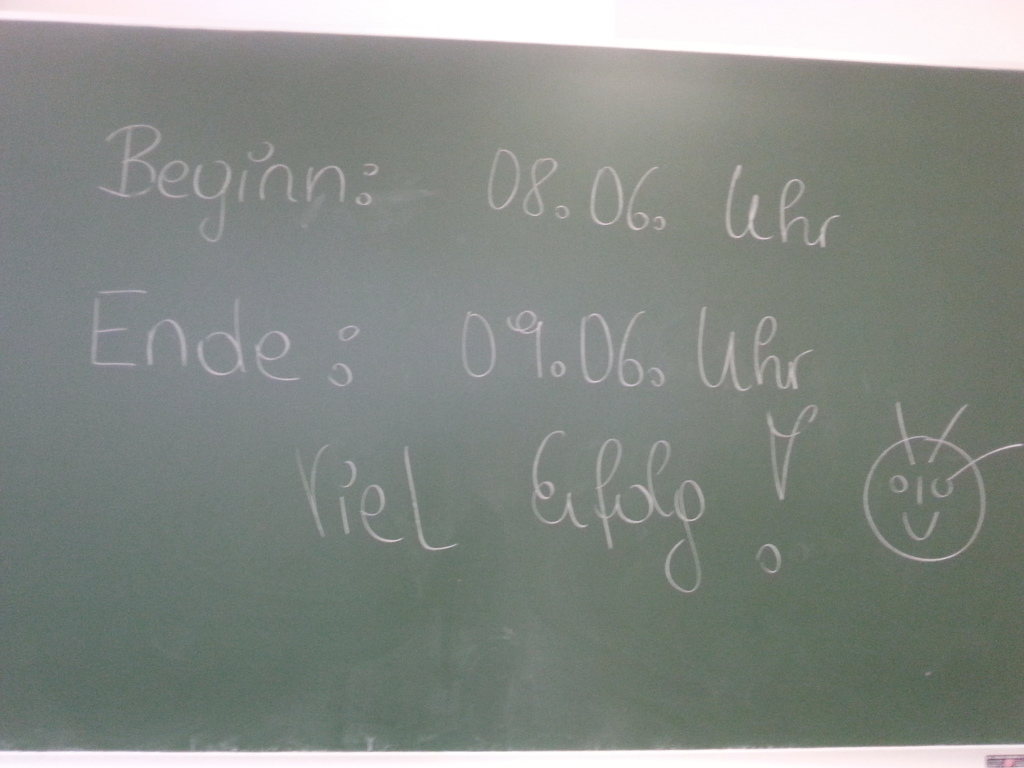 Beginn: 08.06. Uhr
Ende: 09.06. Uhr
Viel Erfolg!